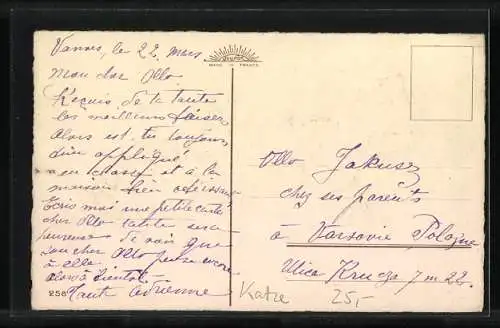 Vannes, le 22 mars
Mon cher Otto
Reçois de ta tante
les meilleurs baisers
Alors est-tu toujours
bien appliqué
en classe et à la
maison bien obéissant
Écris moi une petite carte
cher Otto tatite sera
heureuse de voir que
son cher Otto pense encore
à elle.
alors à bientôt
Tante Adrienne
MADE IN FRANCE
258
Otto Jakusz
chez ses parents
à Varsovie Pologne
Ulica Krucza 7 m 22.
Katze
25,-